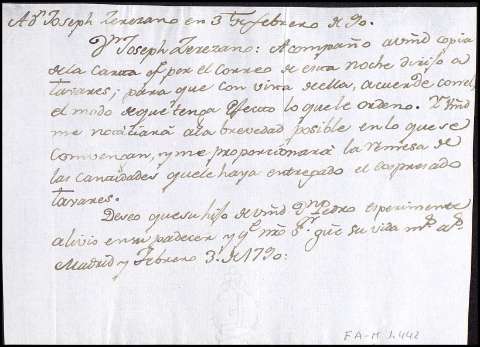 A Dn Joseph Zerezano en 3 de febrero de 90.
Dn Joseph Zerezano: Acompaño a Vmd copia
de la Carta q.e por el Correo de esta noche dirijo a
Tavares; para que con vista de ella, acuerde con el
el modo de que tenga efecto lo que le ordeno. Y Vmd
me noticiará a la brevedad posible en lo que se
convengan, y me proporcionará la remesa de
las cantidades que le haya entregado el expresado
Tavares.
Deseo que su hijo de Vmd Dn Pedro experimente
alivio en su padecer y q.e nro S.r gue su vida m.s a.s
Madrid y Febrero 3. de 1790:
FA-M 1.442